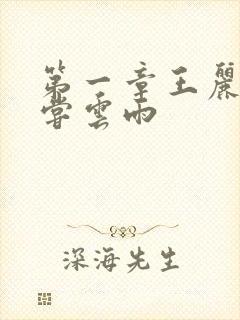 第一章王麗
嘗雲雨
深海先生